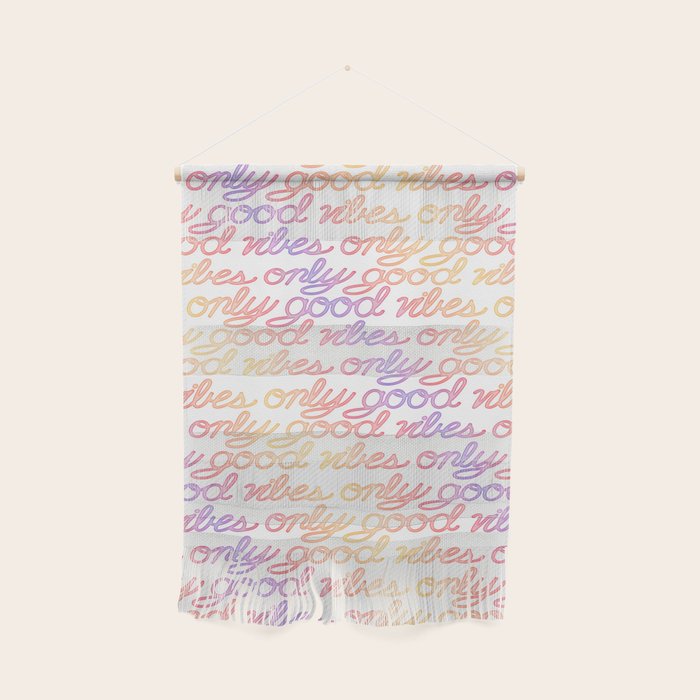 only good vibes o
y good vibes only g
od vibes only good
ibes only good vib
only good vibes o
y good vibes only g
od vibes only good
ibes only good vib
only good vibes o
y good vibes only g
od vibes only good
ibes only good vib
only good vibes o
y good vibes only g
od vibes only good